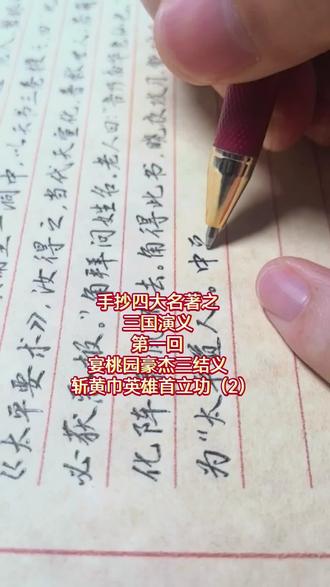 一洞中，以天书三卷授之，曰
《太平要术》，汝得之，当代天宣化，普救世人
必获报。”角拜问姓名。老人曰：吾乃南华老仙也
化阵去。角得此书，晓夜攻习
为“太人。中平
手抄四大名著之
三国演义
第一回
宴桃园豪杰三结义
斩黄巾英雄首立功（2）